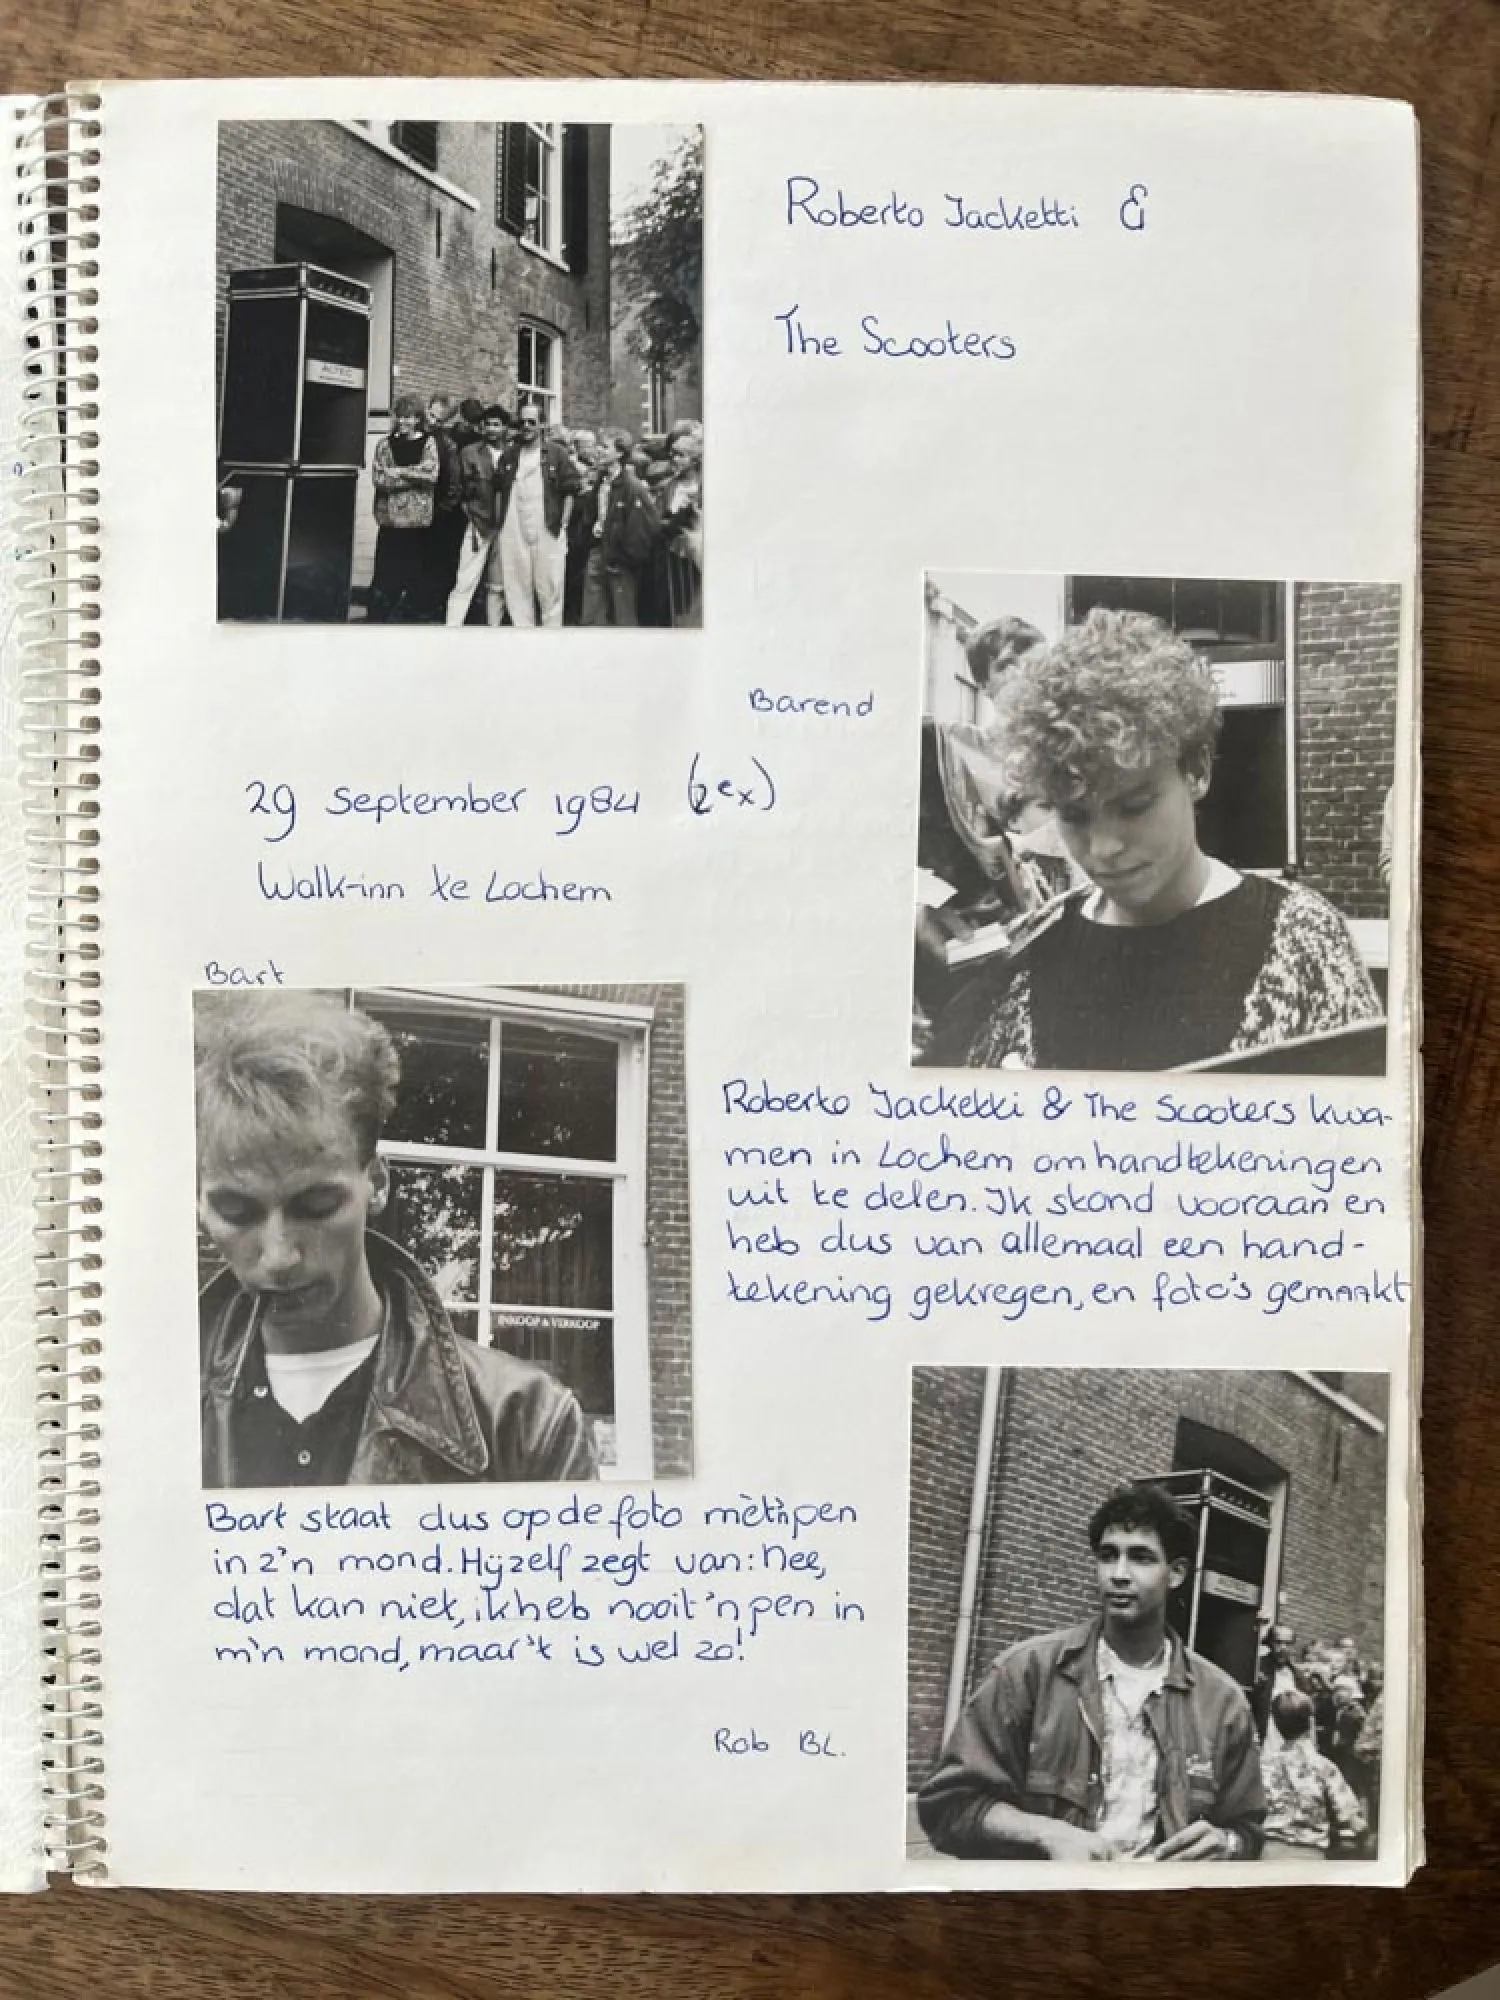 Roberto Jacketti &
The Scooters
ALTEC
Barend
29 September 1984 (2ex)
Walk-inn te Lochem
Bart
INKOOP & VERKOOP
Roberto Jacketti & The Scooters kwa-
men in Lochem om handtekeningen
uit te delen. Ik stond vooraan en
heb dus van allemaal een hand-
tekening gekregen, en foto's gemaakt
Bart staat dus op de foto mèt 'n pen
in z'n mond. Hijzelf zegt van: Nee,
dat kan niet, ik heb nooit 'n pen in
m'n mond, maar 't is wel zo!
Rob BL.